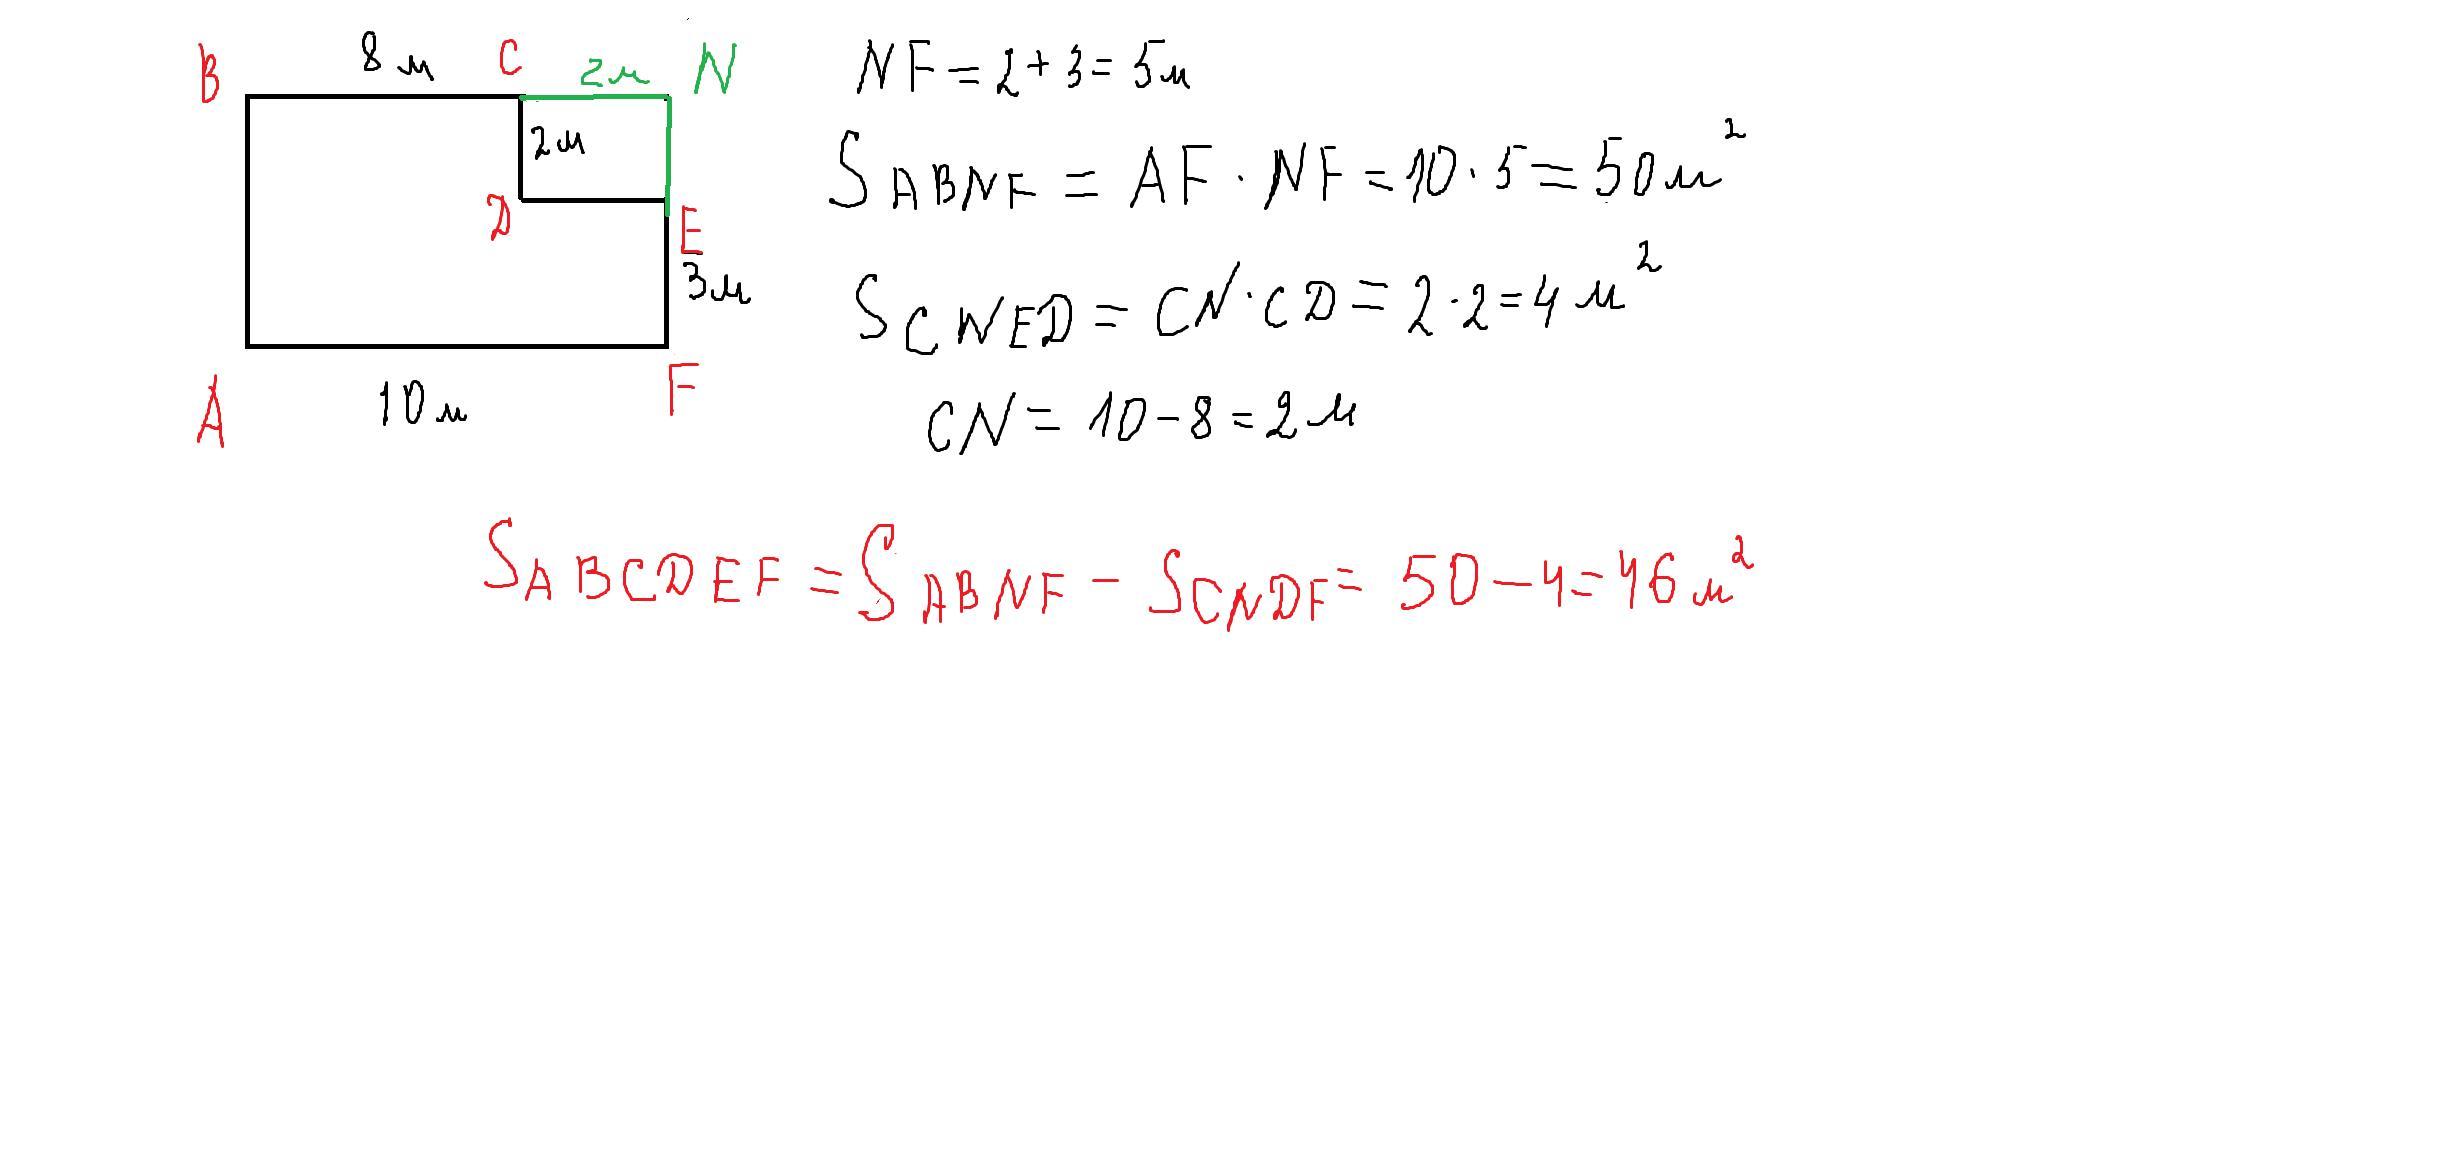 B 8 м C 2м N
2м
D E
3м
A 10 м F
NF = 2 + 3 = 5м
S ABNF = AF · NF = 10 · 5 = 50 м²
S CNED = CN · CD = 2 · 2 = 4 м²
CN = 10 - 8 = 2 м
S ABCDEF = S ABNF - S CNDF = 50 - 4 = 46 м²